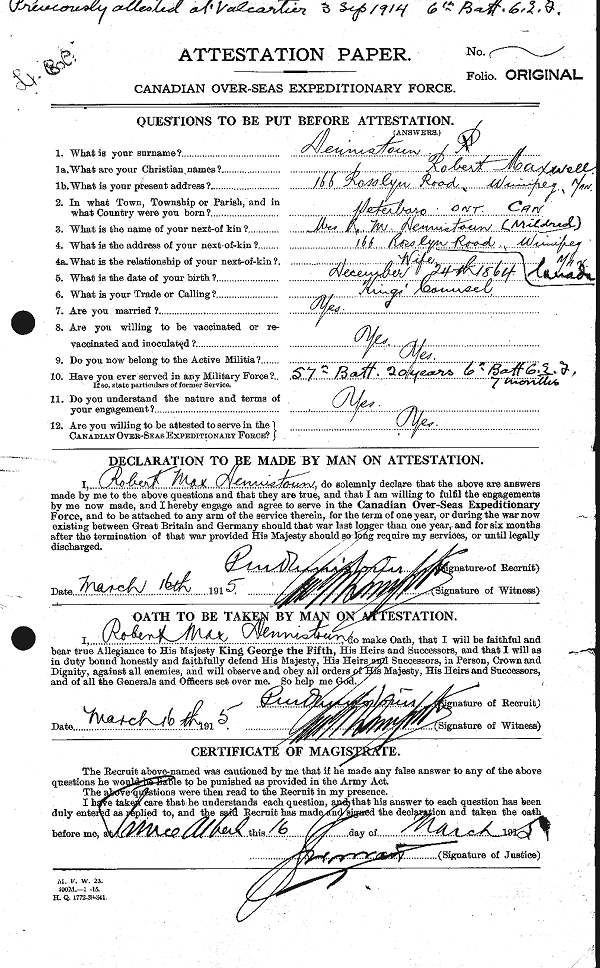 Previously attested at Valcartier 3 Sep 1914 6th Batt. C.E.F.
ATTESTATION PAPER.
No.
Folio. ORIGINAL
CANADIAN OVER-SEAS EXPEDITIONARY FORCE.
QUESTIONS TO BE PUT BEFORE ATTESTATION.
(ANSWERS.)
1. What is your surname? Dennistoun
1a. What are your Christian names? Robert Maxwell
1b. What is your present address? 166 Rosslyn Road, Winnipeg, Man.
2. In what Town, Township or Parish, and in
what Country were you born? Peterboro ONT CAN
3. What is the name of your next-of kin? Mrs R. M. Dennistoun (Mildred)
4. What is the address of your next-of-kin? 166 Roslyn Road, Winnipeg Man
Canada
4a. What is the relationship of your next-of-kin? Wife
5. What is the date of your birth? December 24th 1864
6. What is your Trade or Calling? King's Counsel
7. Are you married? Yes.
8. Are you willing to be vaccinated or re-
vaccinated and inoculated? Yes.
9. Do you now belong to the Active Militia? Yes.
10. Have you ever served in any Military Force? 57th Batt. 20 years 6th Batt C.E.F.
If so, state particulars of former Service. 7 months
11. Do you understand the nature and terms of
your engagement? Yes.
12. Are you willing to be attested to serve in the
CANADIAN OVER-SEAS EXPEDITIONARY FORCE? Yes.
DECLARATION TO BE MADE BY MAN ON ATTESTATION.
I, Robert Max Dennistoun, do solemnly declare that the above are answers
made by me to the above questions and that they are true, and that I am willing to fulfil the engagements
by me now made, and I hereby engage and agree to serve in the Canadian Over-Seas Expeditionary
Force, and to be attached to any arm of the service therein, for the term of one year, or during the war now
existing between Great Britain and Germany should that war last longer than one year, and for six months
after the termination of that war provided His Majesty should so long require my services, or until legally
discharged.
RM Dennistoun (Signature of Recruit)
Date March 16th 1915 (Signature of Witness)
OATH TO BE TAKEN BY MAN ON ATTESTATION.
I, Robert Max Dennistoun, do make Oath, that I will be faithful and
bear true Allegiance to His Majesty King George the Fifth, His Heirs and Successors, and that I will as
in duty bound honestly and faithfully defend His Majesty, His Heirs and Successors, in Person, Crown and
Dignity, against all enemies, and will observe and obey all orders of His Majesty, His Heirs and Successors,
and of all the Generals and Officers set over me. So help me God.
RM Dennistoun (Signature of Recruit)
Date March 16th 1915 (Signature of Witness)
CERTIFICATE OF MAGISTRATE.
The Recruit above-named was cautioned by me that if he made any false answer to any of the above
questions he would be liable to be punished as provided in the Army Act.
The above questions were then read to the Recruit in my presence.
I have taken care that he understands each question, and that his answer to each question has been
duly entered as replied to, and the said Recruit has made and signed the declaration and taken the oath
before me, at Prince Albert this 16 day of March 1915
(Signature of Justice)
M. F. W. 23.
H. Q. 1772-39-841.